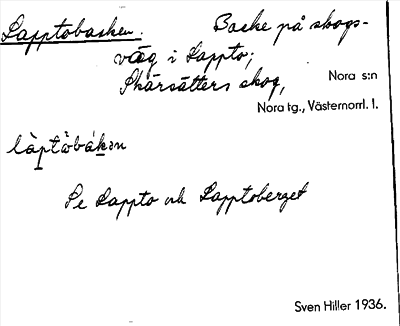 Lapptobacken. Backe på skogs-
väg i Lappto;
Skärsätters skog, Nora s:n
Nora tg., Västernorrl. l.
làptòbák̲ən
Se Lappto och Lapptoberget
Sven Hiller 1936.